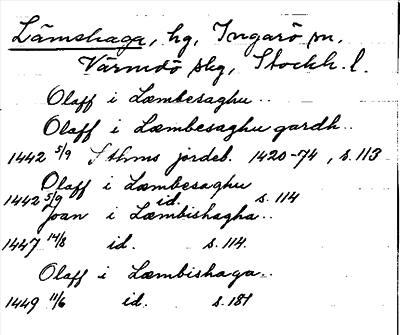 Lämshaga, hg, Ingarö sn,
Värmdö skg, Stockh. l.
Olaff i Læmbesaghu..
Olaff i Læmbesaghu gardh..
1442 5/9 Sthms jordeb. 1420-74, s. 113
Olaff i Læmbesaghu
1442 5/9 id. s. 114
Joan i Læmbishagha..
1447 14/8 id. s. 114.
Olaff i Læmbishaga..
1449 11/6 id. s. 181